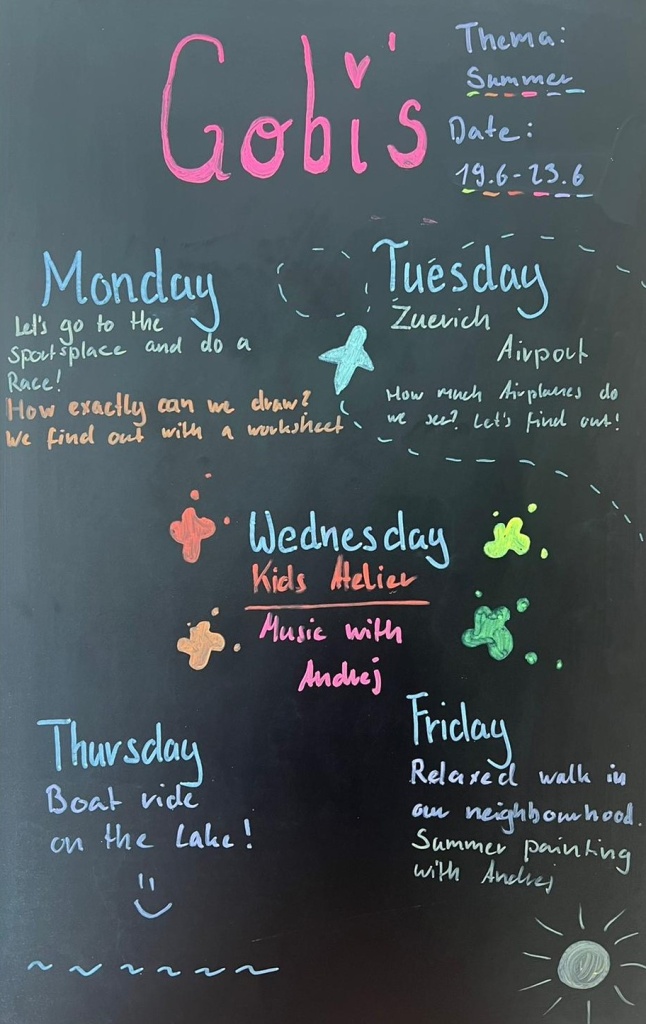 Gobi's
Thema:
Summer
Date:
19.6-23.6
Monday
Let's go to the
sportsplace and do a
Race!
How exactly can we draw?
We find out with a worksheet
Tuesday
Zuerich
Airport
How much Airplanes do
we see? Let's find out!
Wednesday
Kids Atelier
Music with
Andrej
Thursday
Boat ride
on the Lake!
Friday
Relaxed walk in
our neighbourhood.
Summer painting
with Andrej